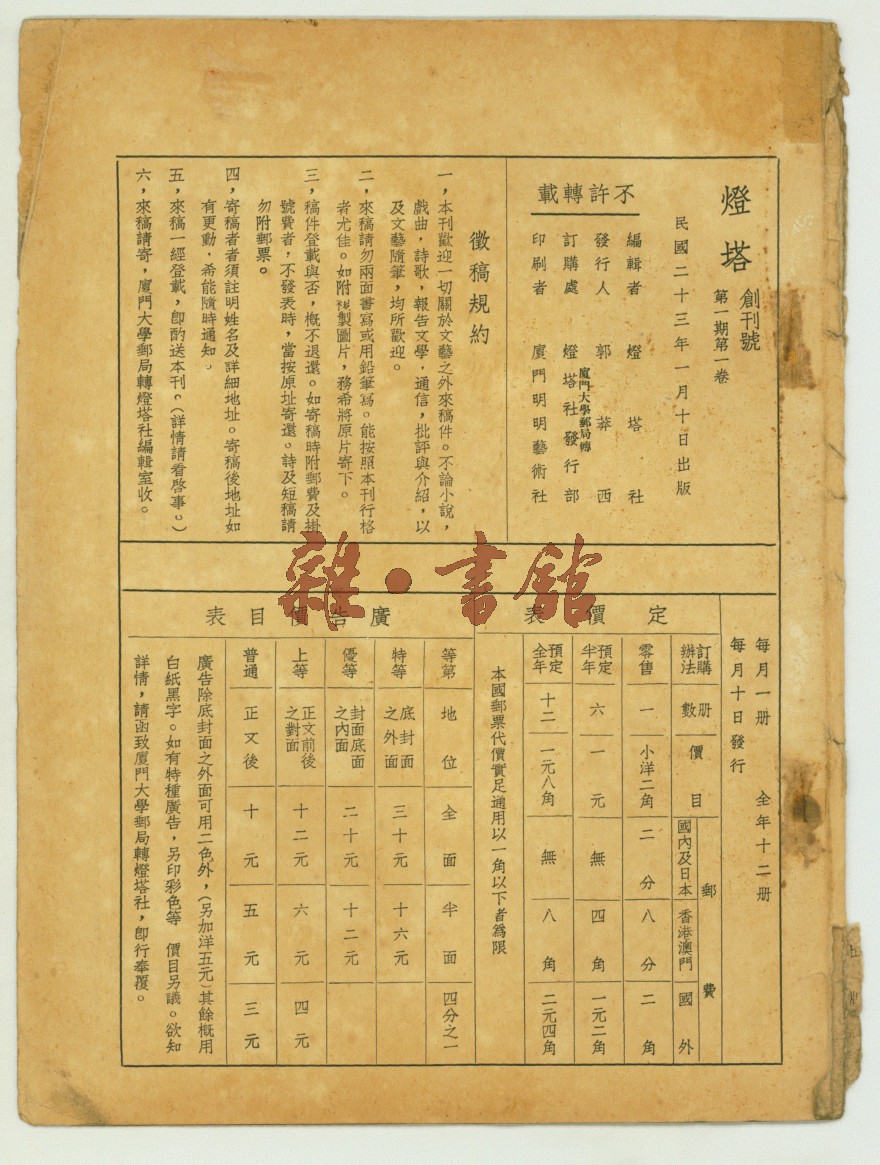 燈塔
創刊號
第一期第一卷
民國二十三年一月十日出版
不許轉載
編輯者 燈塔社
發行人 郭莽西
訂購處 廈門大學郵局轉 燈塔社發行部
印刷者 廈門明明藝術社
徵稿規約
一，本刊歡迎一切關於文藝之外來稿件。不論小說，
戲曲，詩歌，報告文學，通信，批評與介紹，以
及文藝隨筆，均所歡迎。
二，來稿請勿兩面書寫或用鉛筆寫。能按照本刊行格
者尤佳。如附複製圖片，務希將原片寄下。
三，稿件登載與否，概不退還。如寄稿時附郵費及掛
號費者，不發表時，當按原址寄還。詩及短稿請
勿附郵票。
四，寄稿者者須註明姓名及詳細地址。寄稿後地址如
有更動，希能隨時通知。
五，來稿一經登載，卽酌送本刊。（詳情請看啓事。）
六，來稿請寄，廈門大學郵局轉燈塔社編輯室收。
雜・書館
每月一册 全年十二册
每月十日發行
定價表
訂購辦法 册數 價目 郵費 國內及日本 香港澳門 國外
零售 一 小洋二角 二分 八分 二角
預定半年 六 一元 無 四角 一元二角
預定全年 十二 一元八角 無 八角 二元四角
本國郵票代價實足通用以一角以下者爲限
廣告價目表
等第 地位 全面 半面 四分之一
特等 底封面之外面 三十元 十六元
優等 封面底面之內面 二十元 十二元
上等 正文前後之對面 十二元 六元 四元
普通 正文後 十元 五元 三元
廣告除底封面之外面可用二色外，（另加洋五元）其餘概用
白紙黑字。如有特種廣告，另印彩色等 價目另議。欲知
詳情，請函致廈門大學郵局轉燈塔社，卽行奉覆。